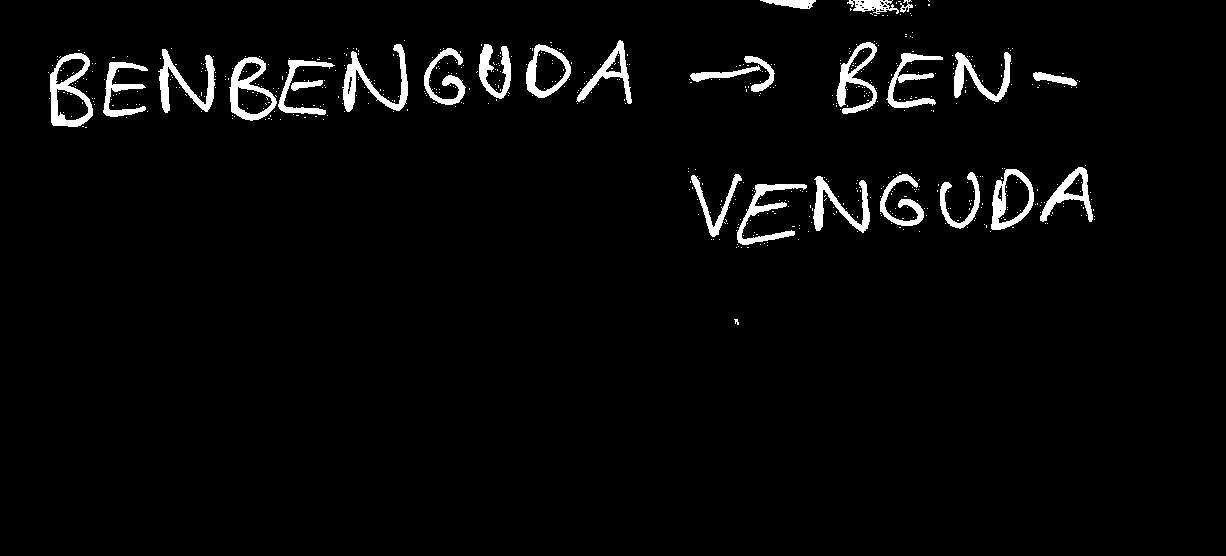 BENBENGUDA → BEN-
VENGUDA